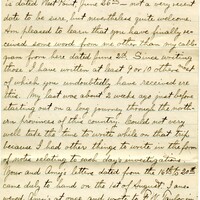 is dated West Point June 26th - not a very recent
date to be sure, but nevertheless quite welcome.
Am pleased to learn that you have finally re-
ceived some word from me other than my cable-
gram from here dated June 2d. Since writing
those I have written at least 9 or 10 others, all
of which you undoubtedly have received ere
this. My last was about 2 weeks ago just before
starting out on a long journey through the north-
ern provinces of this country. Could not very
well take the time to write while on that trip
because I had other things to write in the form
of notes relating to each day's investigations.
Your and Amy's letters dated from the 16th to 20th
came duly to hand on the 1st of August. I ans-
wered Amy's at once and wrote to